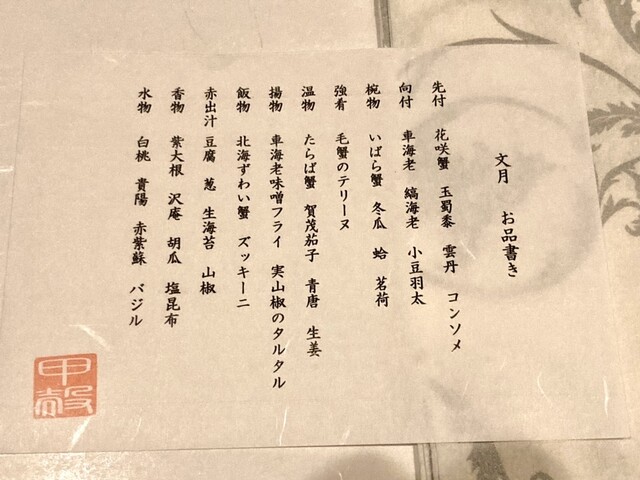 文月 お品書き
先付 花咲蟹 玉蜀黍 雲丹 コンソメ
向付 車海老 縞海老 小豆羽太
椀物 いばら蟹 冬瓜 蛤 茗荷
強肴 毛蟹のテリーヌ
温物 たらば蟹 賀茂茄子 青唐 生姜
揚物 車海老味噌フライ 実山椒のタルタル
飯物 北海ずわい蟹 ズッキーニ
赤出汁 豆腐 葱 生海苔 山椒
香物 紫大根 沢庵 胡瓜 塩昆布
水物 白桃 貴陽 赤紫蘇 バジル
甲殻